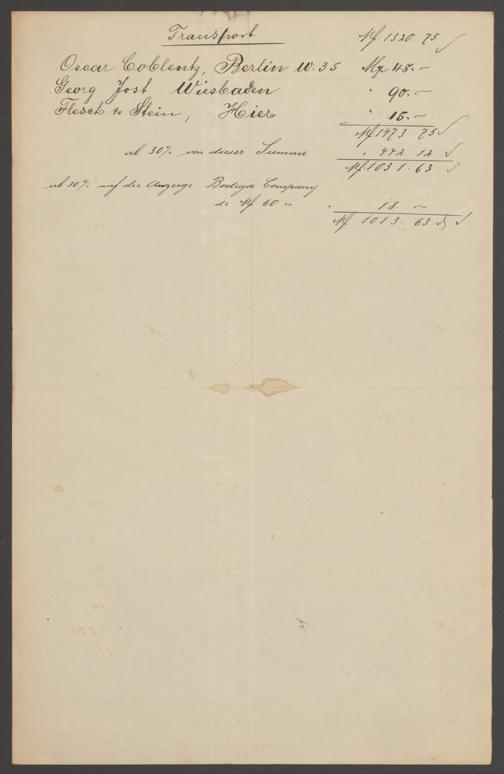 Transport Mf 1320 75
Oscar Coblentz, Berlin W. 35 Mf 48.–
Georg Jost Wiesbaden " 90.–
Flesch & Stein, Hier " 15.–
Mf 1473.75
ab 30% von dieser Summe " 442 12
Mf 1031.63
ab 30% auf der Anzeige Bodega Company
de Mf 60 – " 18 –
Mf 1013.63